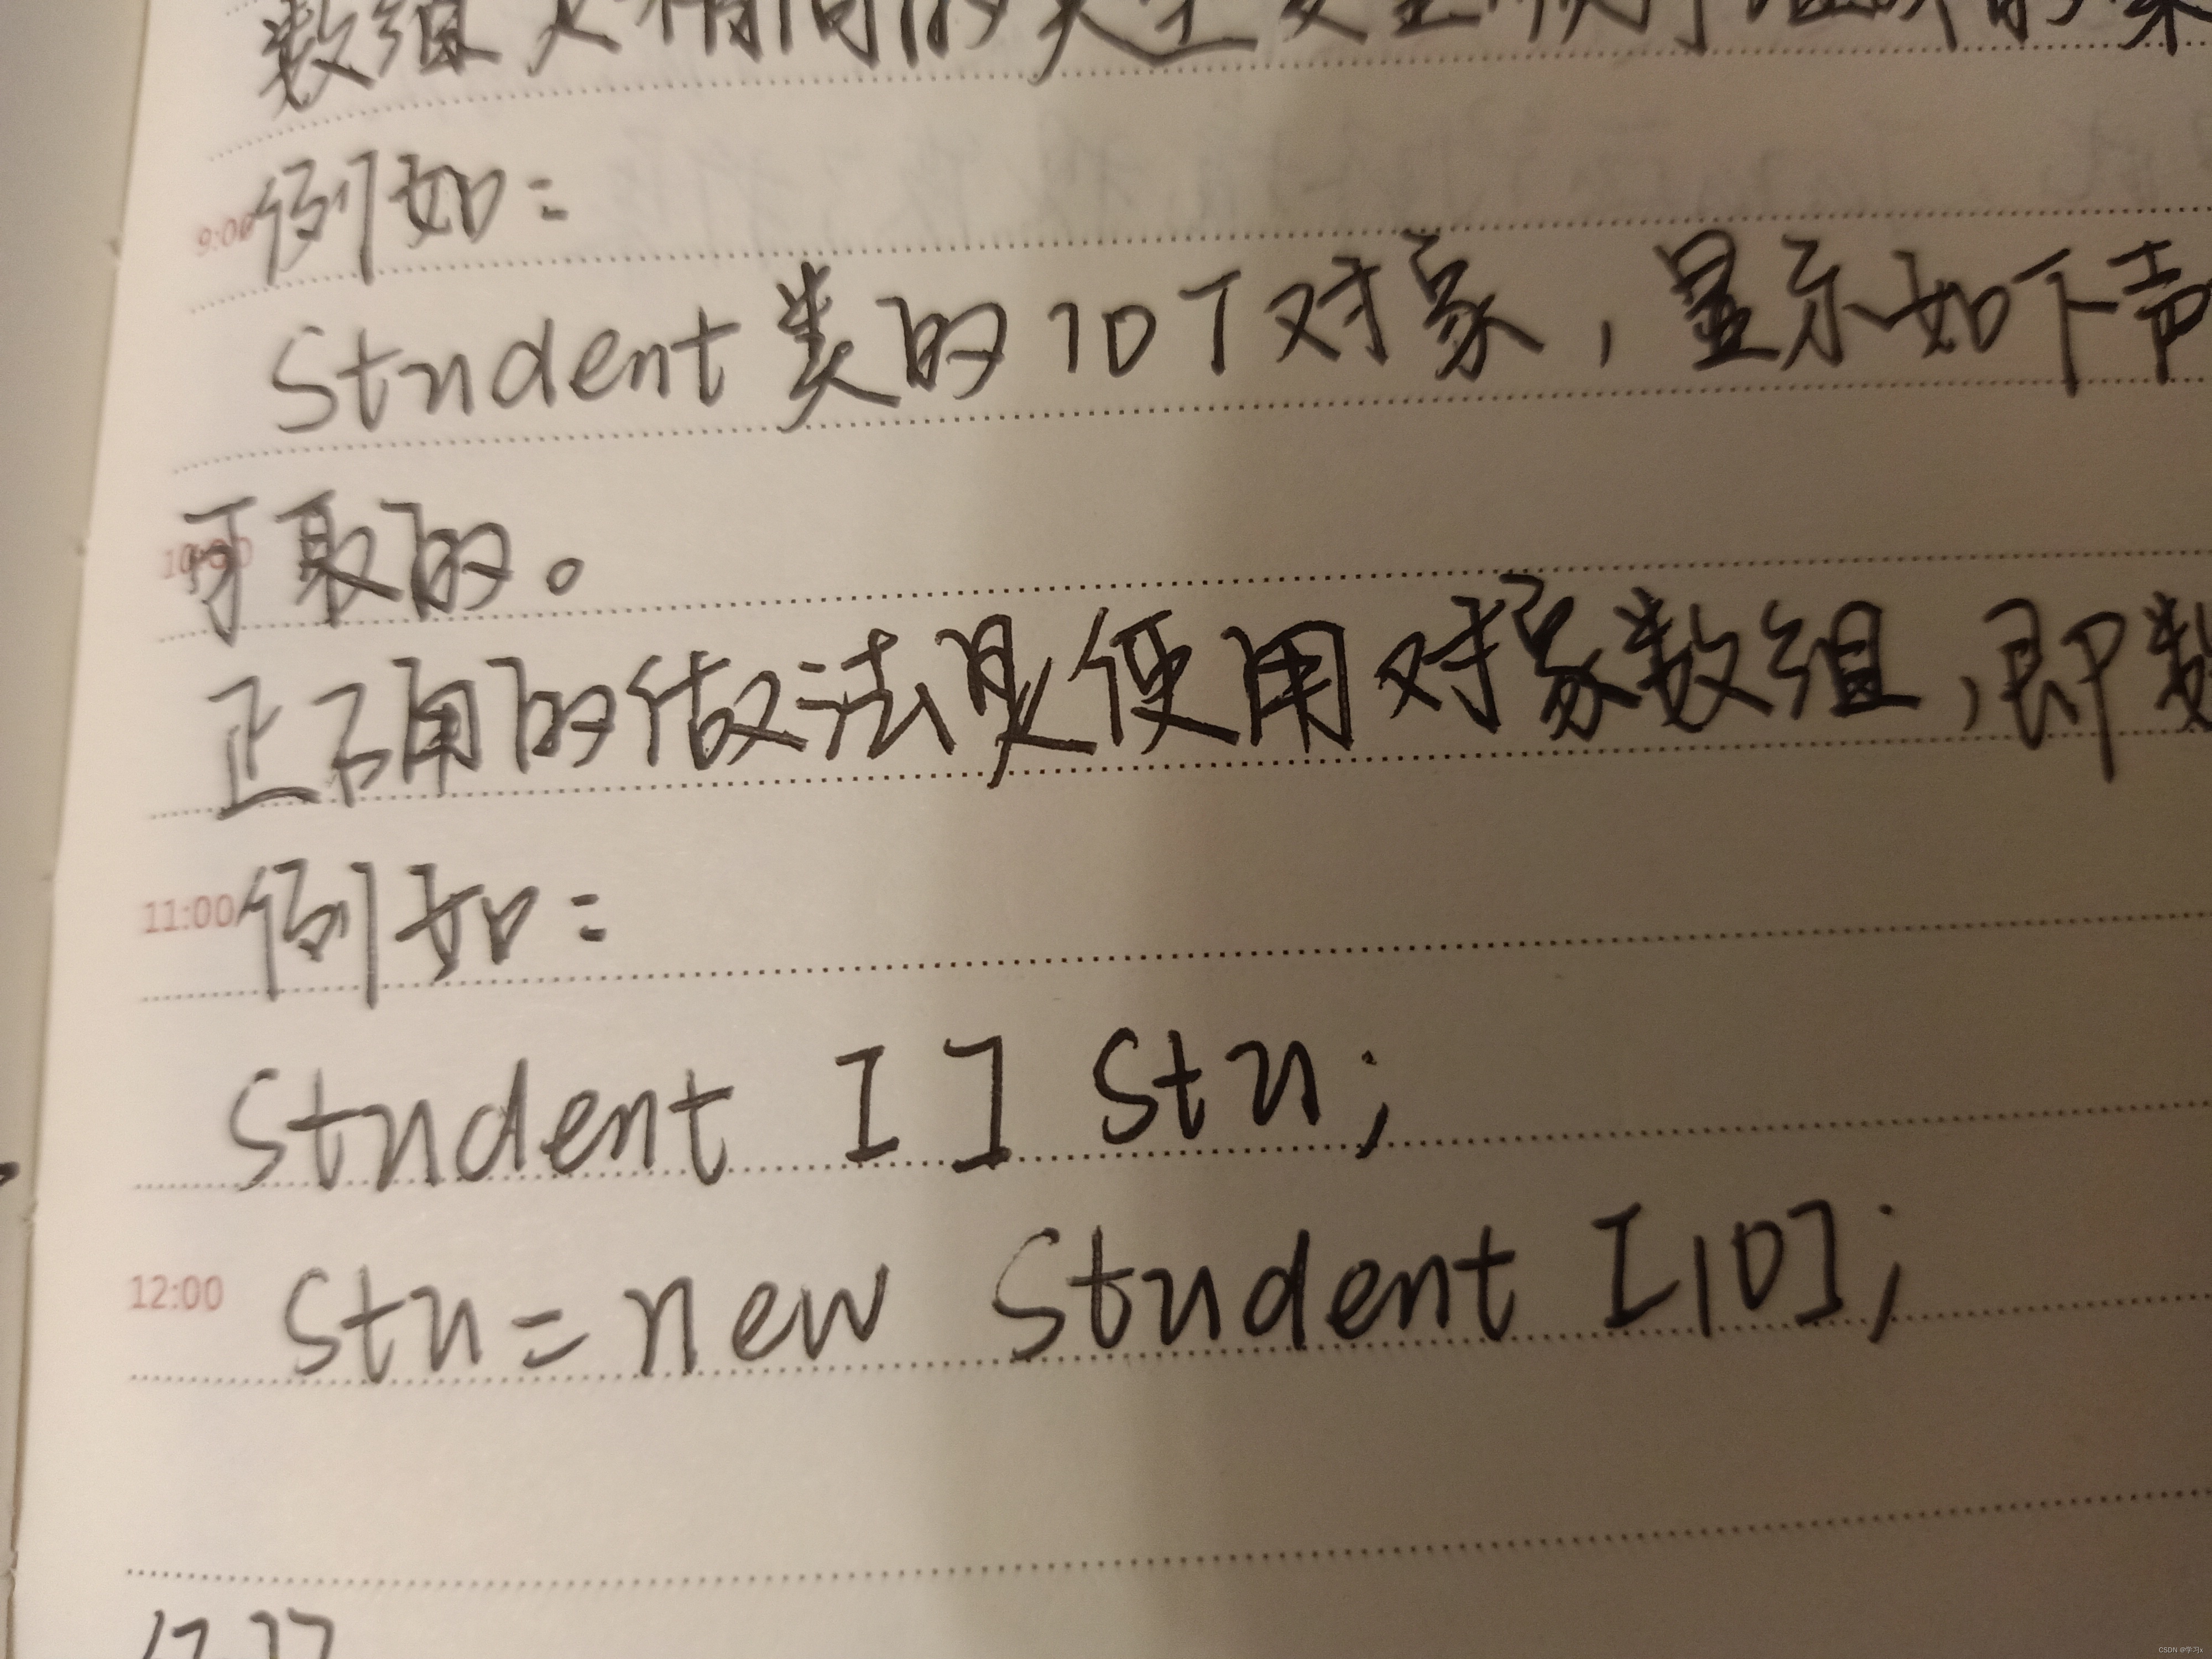 数组是相同的类型
9:00 例如:
Student类的10个对象，显示如下声
10:00 可取的。
正确的做法是使用对象数组，即数
11:00 例如:
Student [] stu;
12:00 stu=new Student [10];
CSDN @学习x